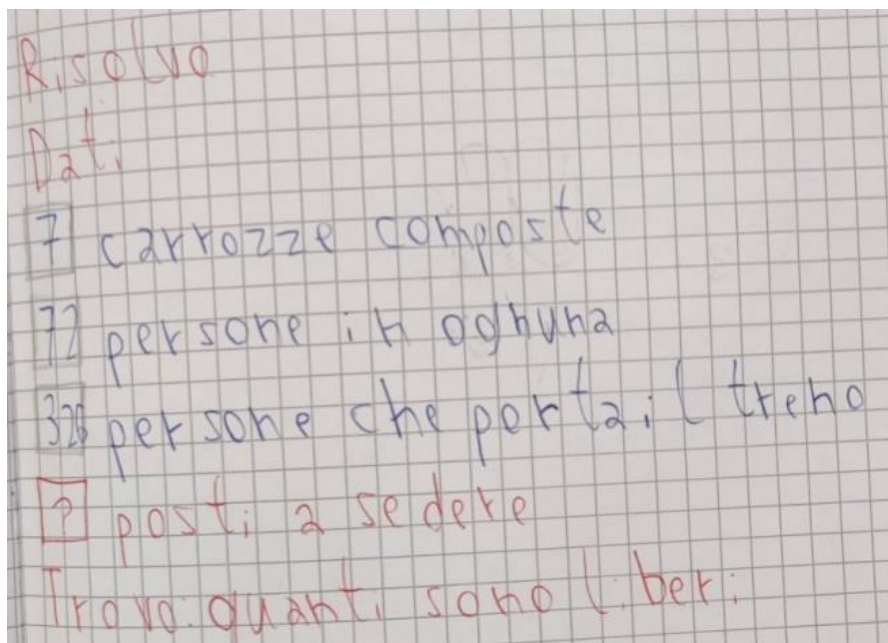 Risolvo
Dati
7 carrozze composte
72 persone in ognuna
328 persone che porta il treno
? posti a sedere
Trovo: quanti sono liberi